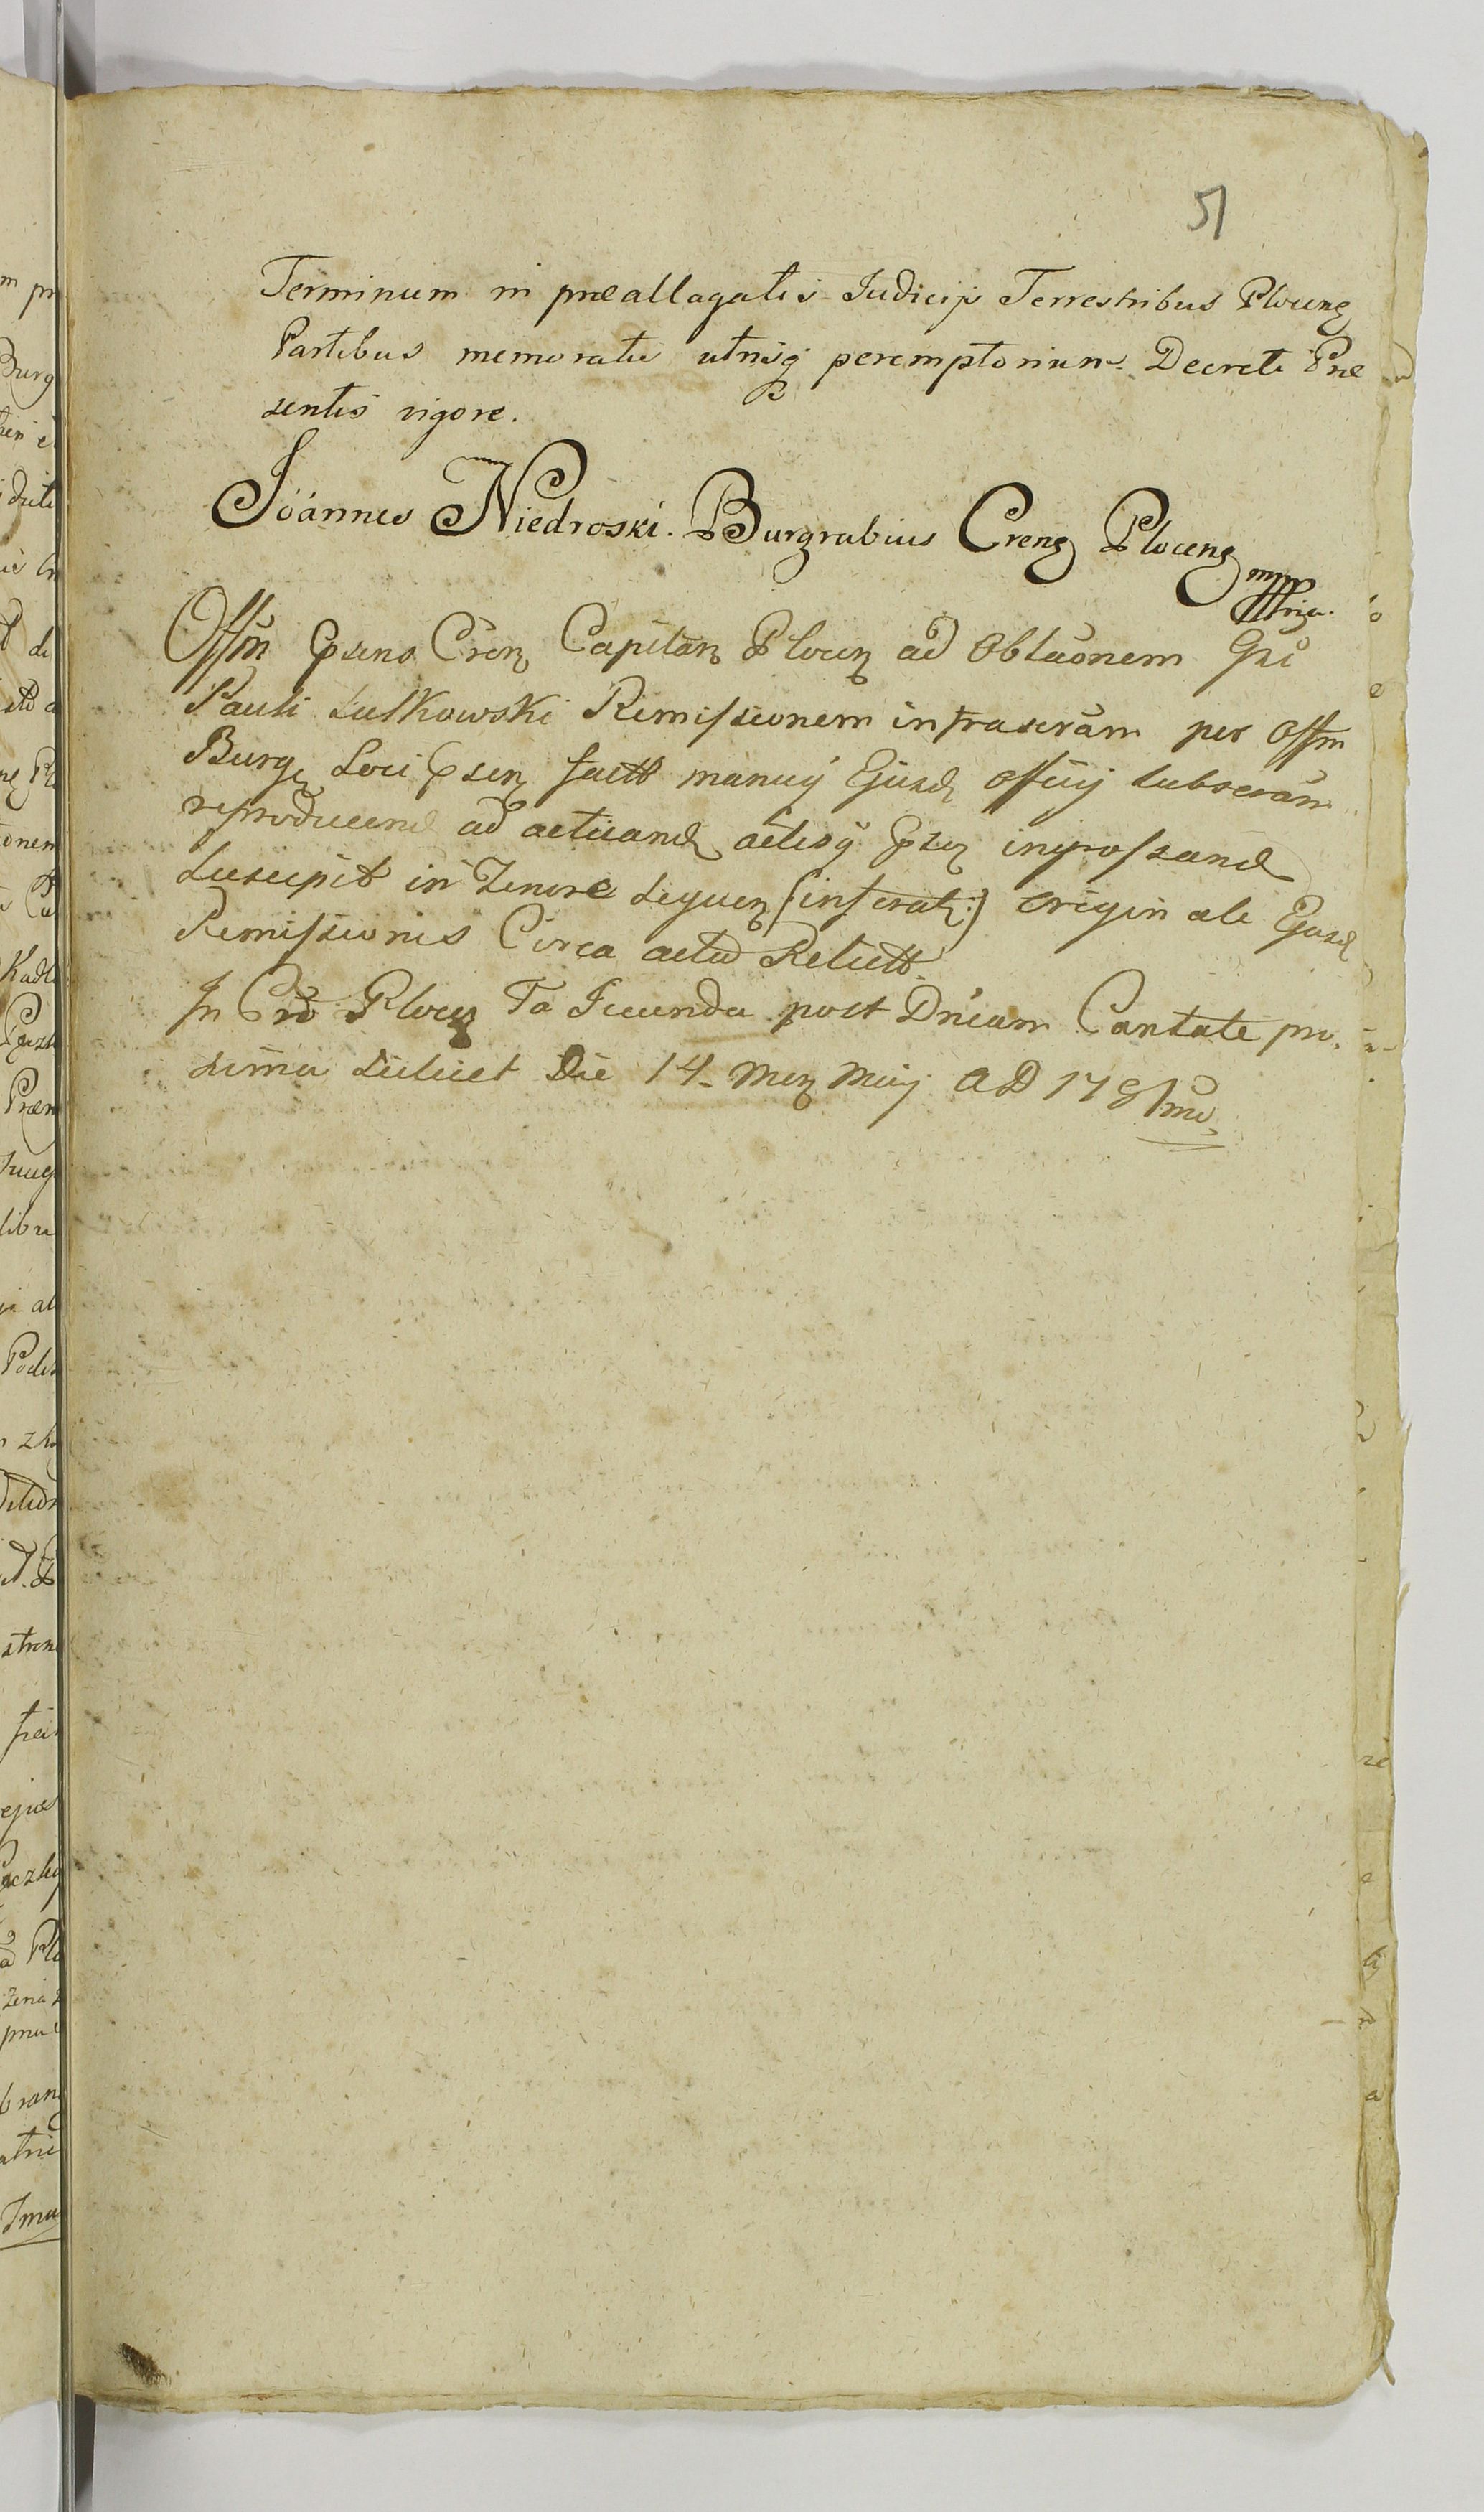 51
Terminum in præallagatis Judicijs Terrestribus Plocens
Partibus memoratis utrisq peremptorium Decreti Præ
sentis vigore.
Joannes Niedroski. Burgrabius Crens Plocens mpp
Offm psens Cren Capitan Plocen ad Oblaonem Gsi
Pauli Lutkowski Remissionem infrascram per Offm
Burg Loci psen factt manuq Ejusd officij subscram
reproducend ad acticand actisq pten ingrossand
Suscepit in Tenore sequen (inserat:) originale Ejusd
Remissionis Circa acta Relictt
In Cro Plocen Fa Secunda post Dnicam Cantate pro
xima scilicet Die 14 Men Maij AD 1781mo